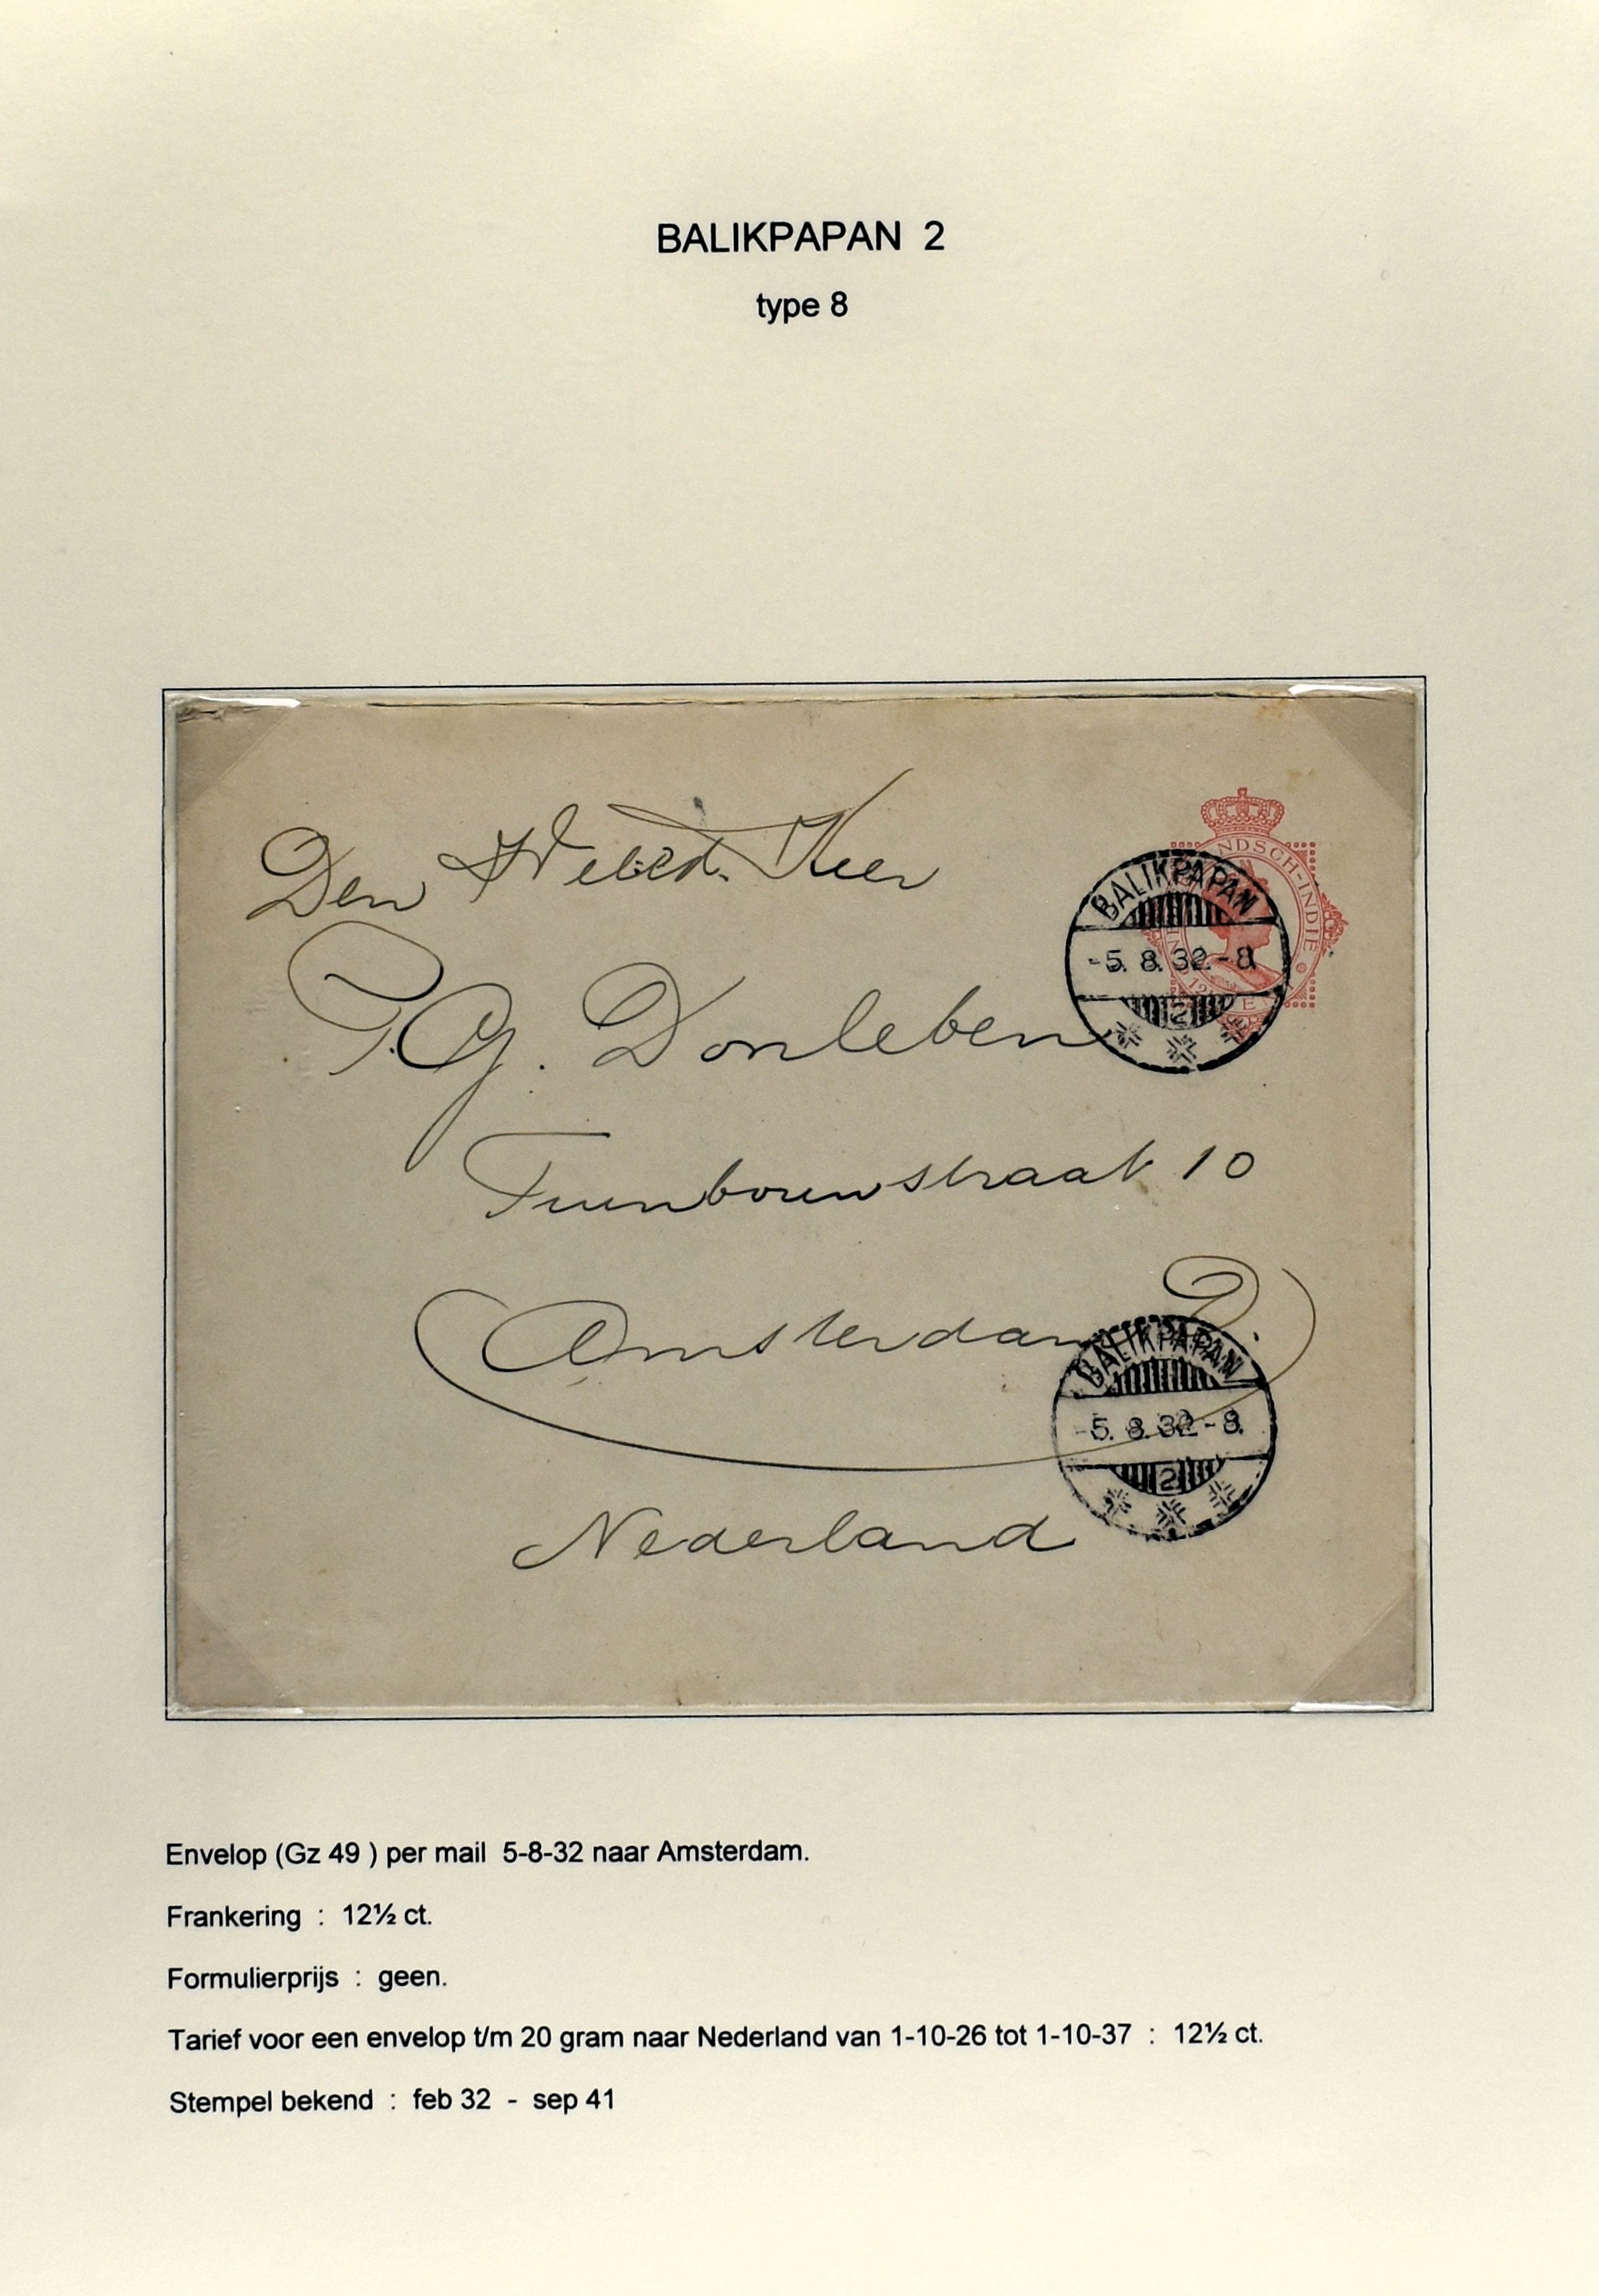 BALIKPAPAN 2
type 8
Den Heer
P.G. Donleben
Tuinbouwstraat 10
Amsterdam
Nederland
NDSCH-INDIE
BALIKPAPAN
-5. 8. 32.-8.
2
BALIKPAPAN
-5. 8. 32-8.
2
Envelop (Gz 49 ) per mail 5-8-32 naar Amsterdam.
Frankering : 12½ ct.
Formulierprijs : geen.
Tarief voor een envelop t/m 20 gram naar Nederland van 1-10-26 tot 1-10-37 : 12½ ct.
Stempel bekend : feb 32 - sep 41